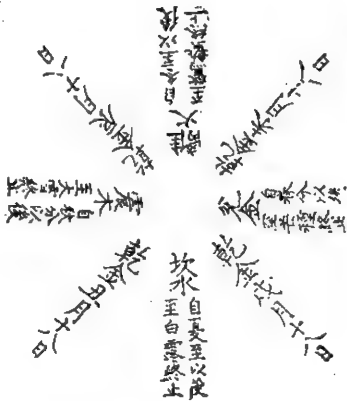 離火
自冬至以後
至驚蟄終止
乾金未月十八日
兌金
自春分以後
至芒種終止
乾金戌月十八日
坎水
自夏至以後
至白露終止
乾金丑月十八日
震木
自秋分以後
至大雪終止
乾金辰月十八日